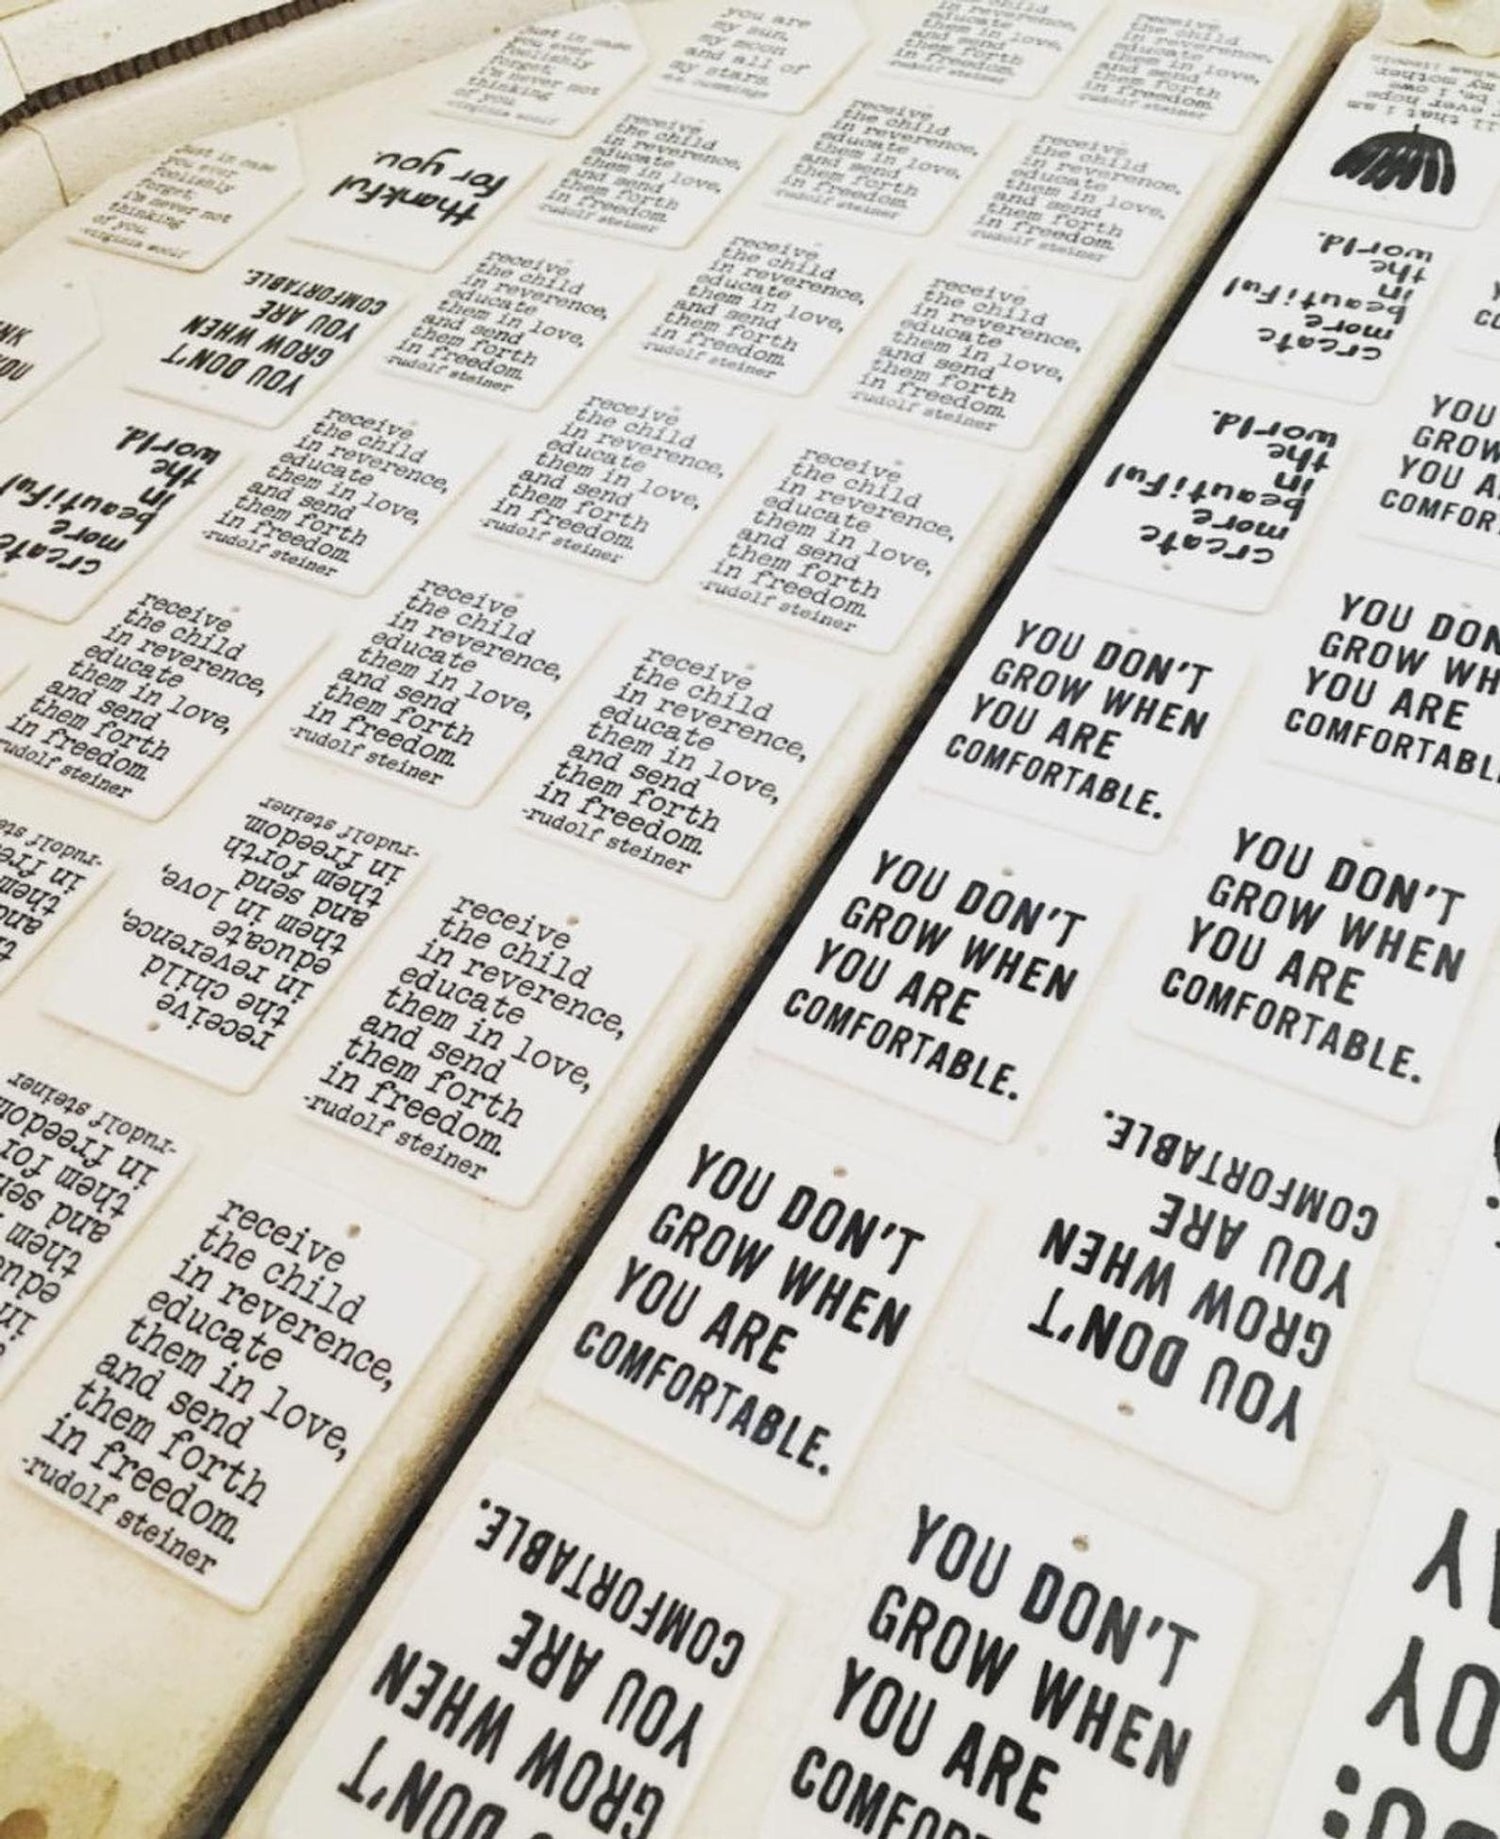 just in case
you ever
foolishly
forget,
i'm never not
thinking
of you
-virginia woolf
you are
my sun,
my moon
and all of
my stars.
e.e. cummings
in reverence,
educate
them in love,
and send
them forth
in freedom.
-rudolf steiner
receive
the child
in reverence,
educate
them in love,
and send
them forth
in freedom.
-rudolf steiner
just in case
you ever
foolishly
forget,
i'm never not
thinking
of you
-virginia woolf
thankful
for you.
receive
the child
in reverence,
educate
them in love,
and send
them forth
in freedom.
-rudolf steiner
receive
the child
in reverence,
educate
them in love,
and send
them forth
in freedom.
-rudolf steiner
receive
the child
in reverence,
educate
them in love,
and send
them forth
in freedom.
-rudolf steiner
YOU DON'T
GROW WHEN
YOU ARE
COMFORTABLE.
receive
the child
in reverence,
educate
them in love,
and send
them forth
in freedom.
-rudolf steiner
receive
the child
in reverence,
educate
them in love,
and send
them forth
in freedom.
-rudolf steiner
receive
the child
in reverence,
educate
them in love,
and send
them forth
in freedom.
-rudolf steiner
create
more
beautiful
in
the
world.
receive
the child
in reverence,
educate
them in love,
and send
them forth
in freedom.
-rudolf steiner
receive
the child
in reverence,
educate
them in love,
and send
them forth
in freedom.
-rudolf steiner
receive
the child
in reverence,
educate
them in love,
and send
them forth
in freedom.
-rudolf steiner
receive
the child
in reverence,
educate
them in love,
and send
them forth
in freedom.
rudolf steiner
receive
the child
in reverence,
educate
them in love,
and send
them forth
in freedom.
-rudolf steiner
receive
the child
in reverence,
educate
them in love,
and send
them forth
in freedom.
-rudolf steiner
and
them
in
-rudolf
receive
the child
in reverence,
educate
them in love,
and send
them forth
in freedom.
-rudolf steiner
receive
the child
in reverence,
educate
them in love,
and send
them forth
in freedom.
-rudolf steiner
in
them
and
them
in freedom
-rudolf steiner
receive
the child
in reverence,
educate
them in love,
and send
them forth
in freedom.
-rudolf steiner
that i am
ever hope
be, i owe
my mother
create
more
beautiful
in
the
world.
create
more
beautiful
in
the
world.
YOU
GROW
YOU
YOU DON'T
GROW WHEN
YOU ARE
COMFORTABLE.
YOU
GROW
YOU ARE
COMFORTABL
YOU DON'T
GROW WHEN
YOU ARE
COMFORTABLE.
YOU DON'T
GROW WHEN
YOU ARE
COMFORTABLE.
YOU DON'T
GROW WHEN
YOU ARE
COMFORTABLE.
YOU DON'T
GROW WHEN
YOU ARE
COMFORTABLE.
DON'T
GROW WHEN
YOU ARE
COMFORTABLE.
YOU DON'T
GROW WHEN
YOU ARE